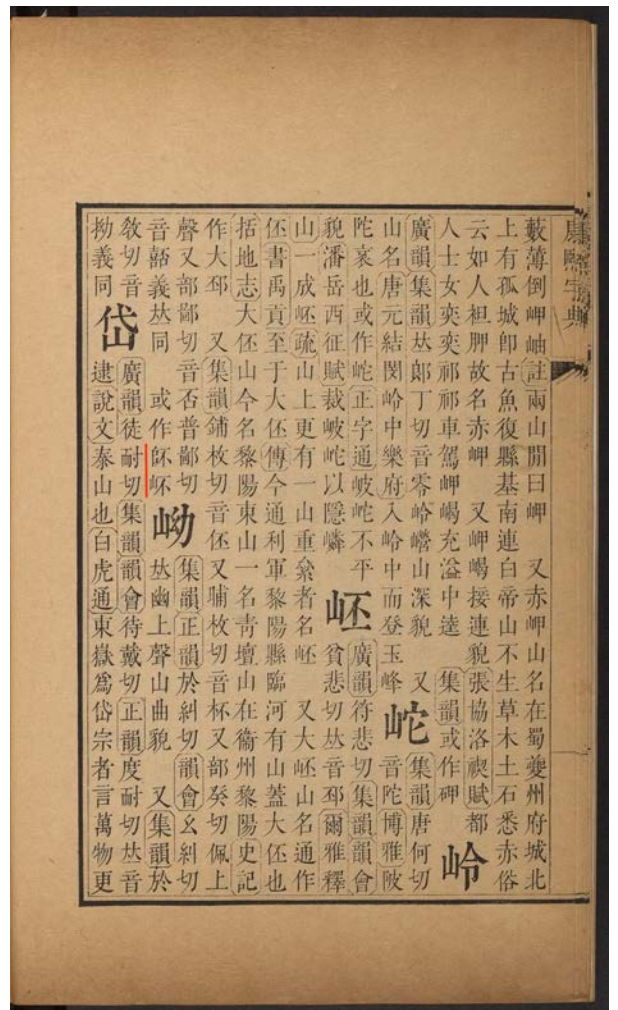 康熙字典
藪薄倒岬岫註兩山閒曰岬　又赤岬山名在蜀夔州府城北
上有孤城卽古魚復縣基南連白帝山不生草木土石悉赤俗
云如人袒胛故名赤岬　又岬嵑接連貌張協洛禊賦都
人士女奕奕祁祁車駕岬嵑充溢中逵　集韻或作碑
岭
廣韻集韻𠀤郞丁切音零岭巆山深貌　又
山名唐元結閔岭中樂府入岭中而登玉峰
岮
集韻唐何切
音陀博雅陂
陀衺也或作岮正字通岥岮不平
貌潘岳西征賦裁岥岮以隱嶙
岯
廣韻符悲切集韻韻會
貧悲切𠀤音邳爾雅釋
山一成岯疏山上更有一山重絫者名岯　又大岯山名通作
伾書禹貢至于大伾傳今通利軍黎陽縣臨河有山蓋大伾也
括地志大伾山今名黎陽東山一名靑壇山在衞州黎陽史記
作大邳　又集韻鋪枚切音伾又晡枚切音杯又部癸切佩上
聲又部鄙切音否普鄙切
音嚭義𠀤同　或作
岰
集韻正韻於糾切韻會幺糾切
𠀤幽上聲山曲貌　又集韻於
敎切音
拗義同
岱
廣韻徒耐切集韻韻會待戴切正韻度耐切𠀤音
逮說文泰山也白虎通東嶽爲岱宗者言萬物更